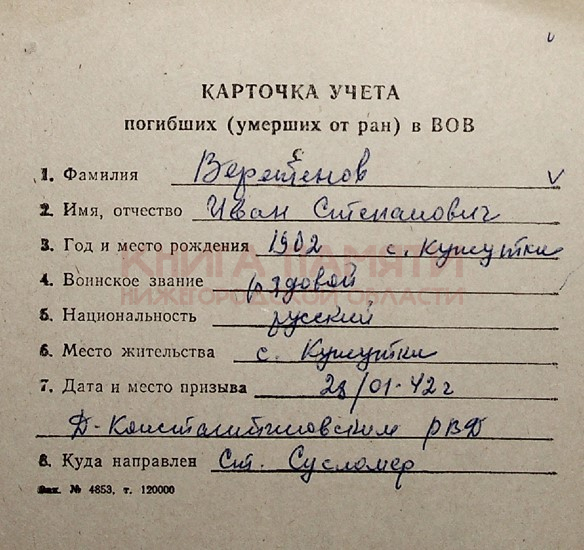 КАРТОЧКА УЧЕТА
погибших (умерших от ран) в ВОВ
1. Фамилия
2. Имя, отчество Иван Степанович
3. Год и место рождения 1902 с. Кужутки
КНИГА ПАМЯТИ
4. Воинское звание рядовой
НИЖЕГОРОДСКОЙ ОБЛАСТИ
5. Национальность русский
6. Место жительства с. Кужутки
7. Дата и место призыва 28/01-42 г
Д-Константиновским РВД
8. Куда направлен ст. Сусломер
Зак. № 4853, т. 120000